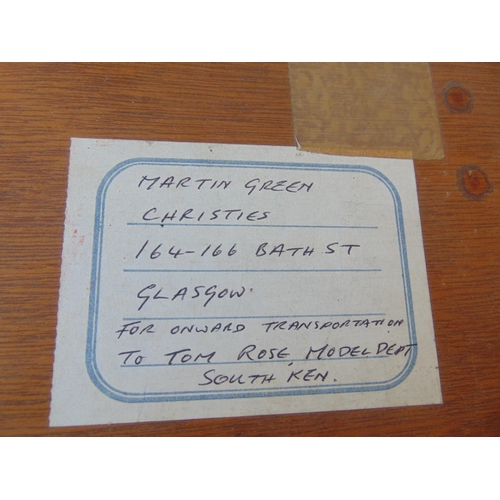 MARTIN GREEN
CHRISTIES
164-166 BATH ST
GLASGOW.
FOR ONWARD TRANSPORTATION
TO TOM ROSE, MODEL DEPT
SOUTH KEN.